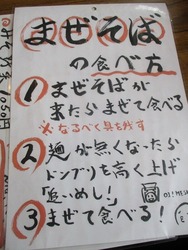 まぜそば
の食べ方
① まぜそばが
来たらまぜて食べる
※なるべく具を残す
② 麺が無くなったら
ドンブリを高く上げ
「追いめし!」
OI!MESHI
③ まぜて食べる!